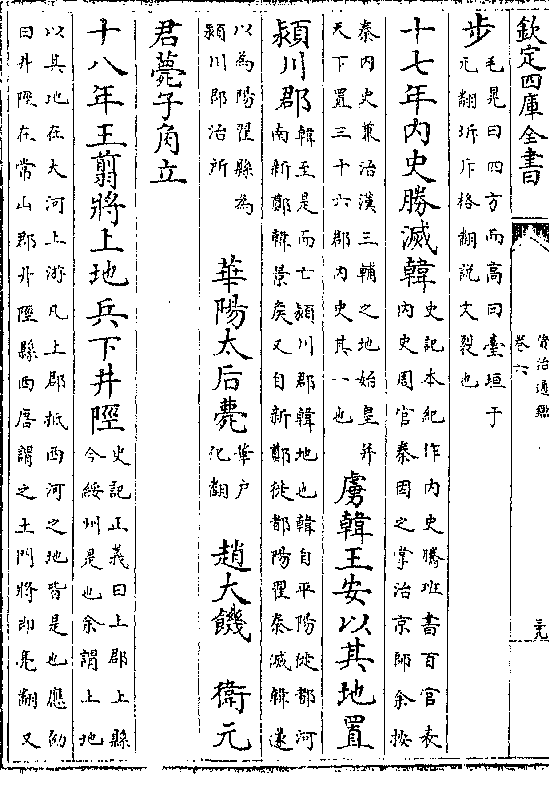 欽定四庫全書
資治通鑑
卷六
步
毛晃曰四方而高曰臺垣于
元翻坼斥格翻說文裂也
十七年内史勝滅韓
史記本紀作内史騰班書百官表
内史周官秦因之掌治京師余按
秦内史兼治漢三輔之地始皇并
天下置三十六郡内史其一也
虜韓王安以其地置
潁川郡
韓至是而亡潁川郡韓地也韓自平陽徙都河
南新鄭韓景侯又自新鄭徙都陽翟秦滅韓遂
以為陽翟縣為
潁川郡治所
華陽太后薨
華户
化翻
趙大饑
衛元
君薨子角立
十八年王翦將上地兵下井陘
史記正義曰上郡上縣
今綏州是也余謂上地
以其地在大河上游凡上郡抵西河之地皆是也應劭
曰井陘在常山郡井陘縣西唐謂之土門將即亮翻又